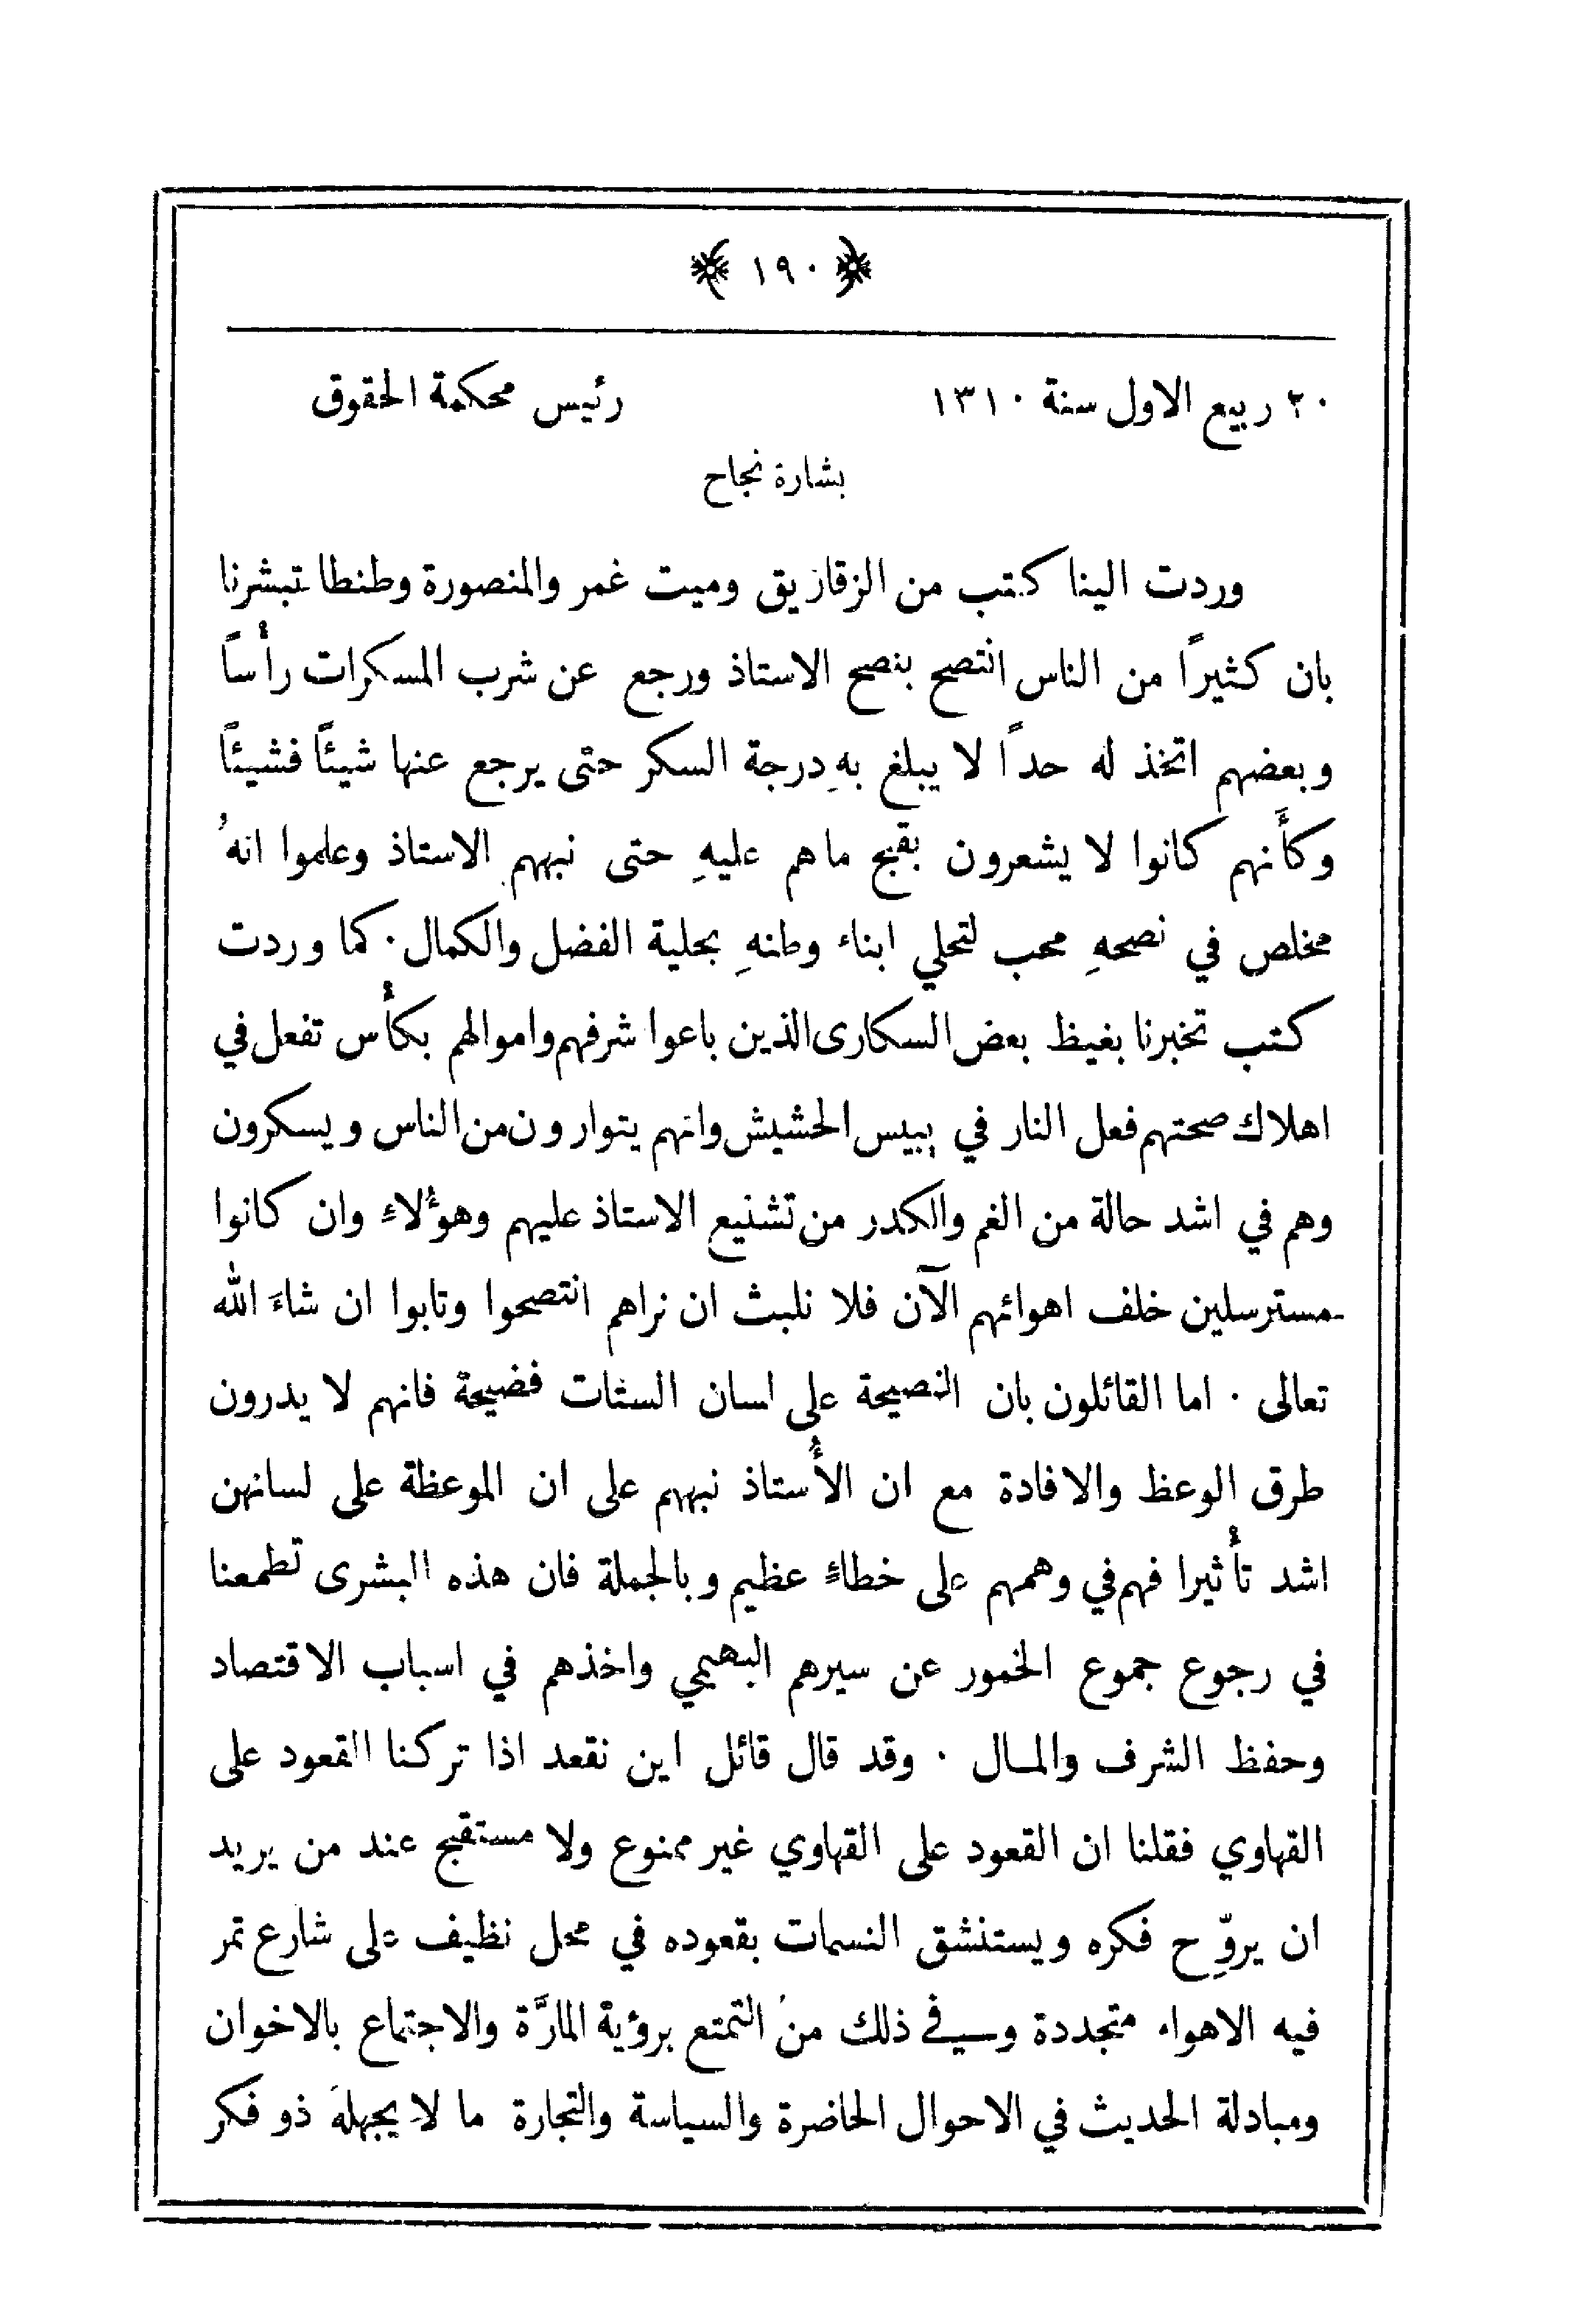 ﴿ ١٩٠ ﴾
٢٠ ربيع الاول سنة ١٣١٠ رئيس محكمة الحقوق
بشارة نجاح
وردت الينا كتب من الزقازيق وميت غمر والمنصورة وطنطا تبشرنا
بان كثيرًا من الناس انتصح بنصح الاستاذ ورجع عن شرب المسكرات رأْساً
وبعضهم اتخذ له حدًا لا يبلغ بهِ درجة السكر حتى يرجع عنها شيئًا فشيئًا
وكأَنهم كانوا لا يشعرون بقبح ماهم عليهِ حتى نبههم الاستاذ وعلموا انهُ
مخلص في نصحهِ محب لتحلي ابناء وطنهِ بحلية الفضل والكمال ٠ كما وردت
كتب تخبرنا بغيظ بعض السكارى الذين باعوا شرفهم واموالهم بكأْس تفعل في
اهلاك صحتهم فعل النار في يبيس الحشيش وانهم يتوارون من الناس ويسكرون
وهم في اشد حالة من الغم والكدر من تشنيع الاستاذ عليهم وهؤُلاءِ وان كانوا
مسترسلين خلف اهوائهم الآن فلا نلبث ان نراهم انتصحوا وتابوا ان شاءَ الله
تعالى ٠ اما القائلون بان النصيحة على لسان الستات فضيحة فانهم لا يدرون
طرق الوعظ والافادة مع ان الأُستاذ نبههم على ان الموعظة على لسانهن
اشد تأْثيرا فهم في وهمهم على خطاءٍ عظيم وبالجملة فان هذه البشرى تطمعنا
في رجوع جموع الخمور عن سيرهم البهيمي واخذهم في اسباب الاقتصاد
وحفظ الشرف والمال ٠ وقد قال قائل اين نقعد اذا تركنا القعود على
القهاوي فقلنا ان القعود على القهاوي غير ممنوع ولا مستقبح عند من يريد
ان يروّح فكره ويستنشق النسمات بقعوده في محل نظيف على شارع تمر
فيه الاهواء متجددة وسيفي ذلك من التمتع برؤية المارَّة والاجتماع بالاخوان
ومبادلة الحديث في الاحوال الحاضرة والسياسة والتجارة ما لا يجهله ذو فكر